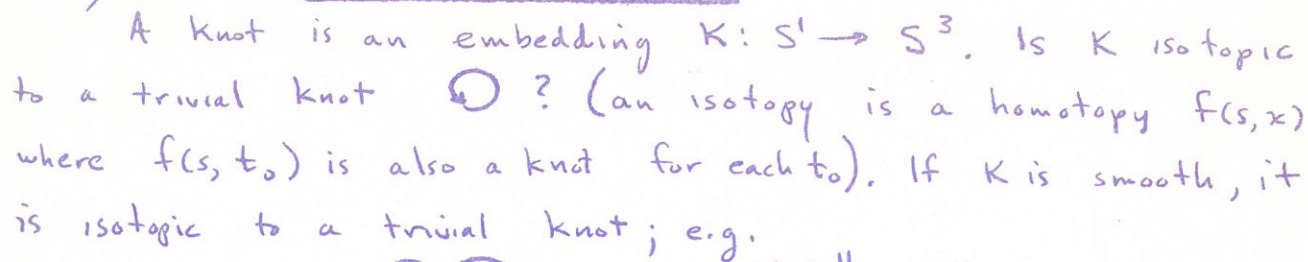 A knot is an embedding K: S¹ → S³. Is K isotopic
to a trivial knot ? (an isotopy is a homotopy f(s,x)
where f(s,t₀) is also a knot for each t₀). If K is smooth, it
is isotopic to a trivial knot; e.g.